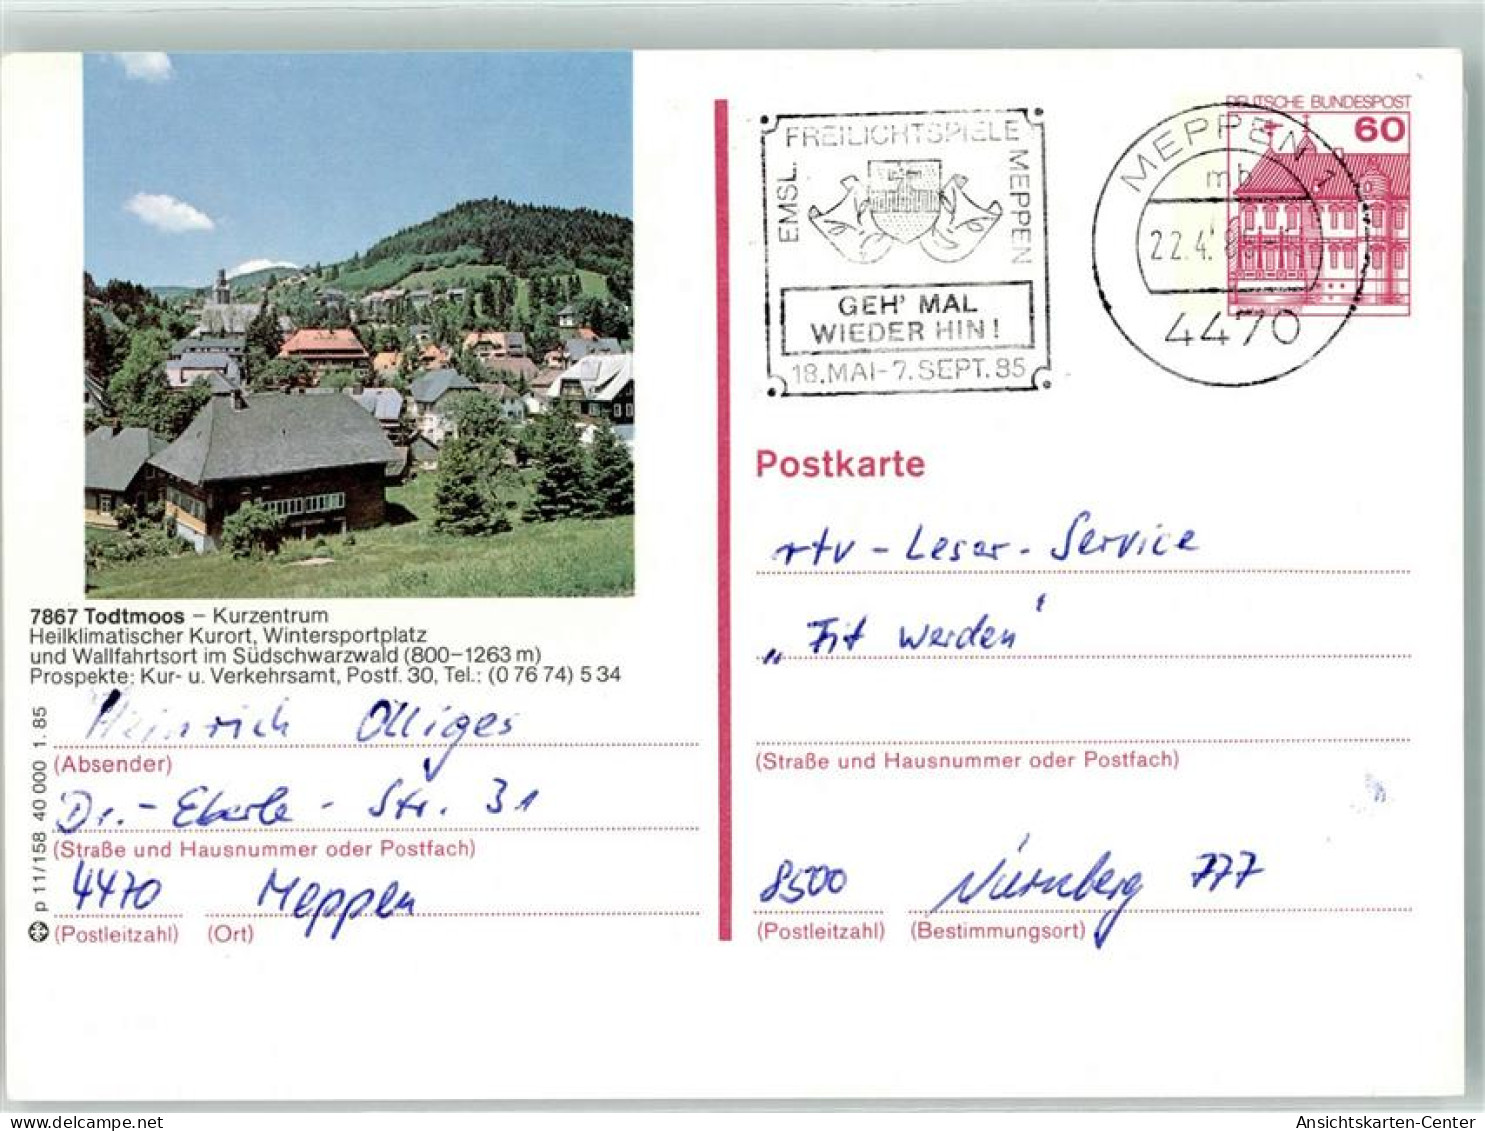 7867 Todtmoos – Kurzentrum
Heilklimatischer Kurort, Wintersportplatz
und Wallfahrtsort im Südschwarzwald (800–1263 m)
Prospekte: Kur- u. Verkehrsamt, Postf. 30, Tel.: (0 76 74) 5 34
Heinrich Olliges
(Absender)
Dr.-Eberle-Str. 31
(Straße und Hausnummer oder Postfach)
4470 Meppen
(Postleitzahl) (Ort)
p 11/158 40 000 1.85
EMSL. FREILICHTSPIELE MEPPEN
GEH' MAL
WIEDER HIN!
18.MAI-7.SEPT.85
MEPPEN 1
mb
22.4.
4470
DEUTSCHE BUNDESPOST
60
Postkarte
rtv-Leser-Service
„Fit werden"
(Straße und Hausnummer oder Postfach)
8500 Nürnberg 777
(Postleitzahl) (Bestimmungsort)
Ansichtskarten-Center